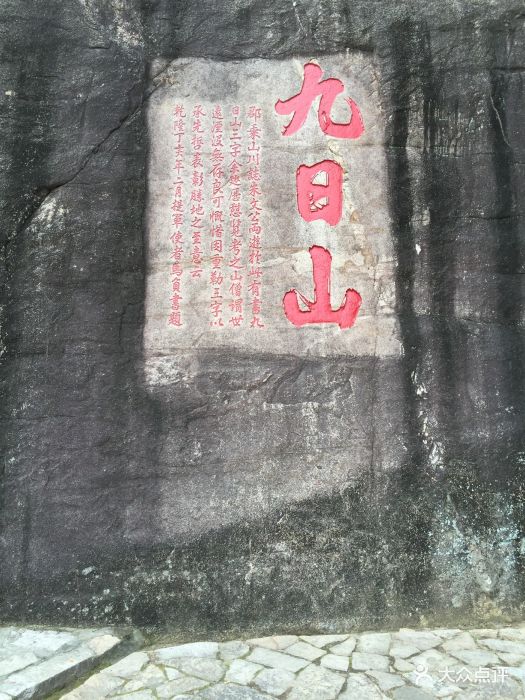 九日山
郡乘山川誌朱文公两遊於此有書九
日山三字余遊歷慇覓考之山僧謂世
遠湮沒無存良可慨惜因重勒三字以
承先哲表彰勝地之至意云
乾隆丁亥年二月提軍使者馬負書題
大众点评